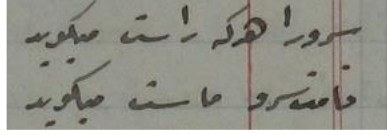 سرو را هرکه راست میگوید
قامت سرو ماست میگوید